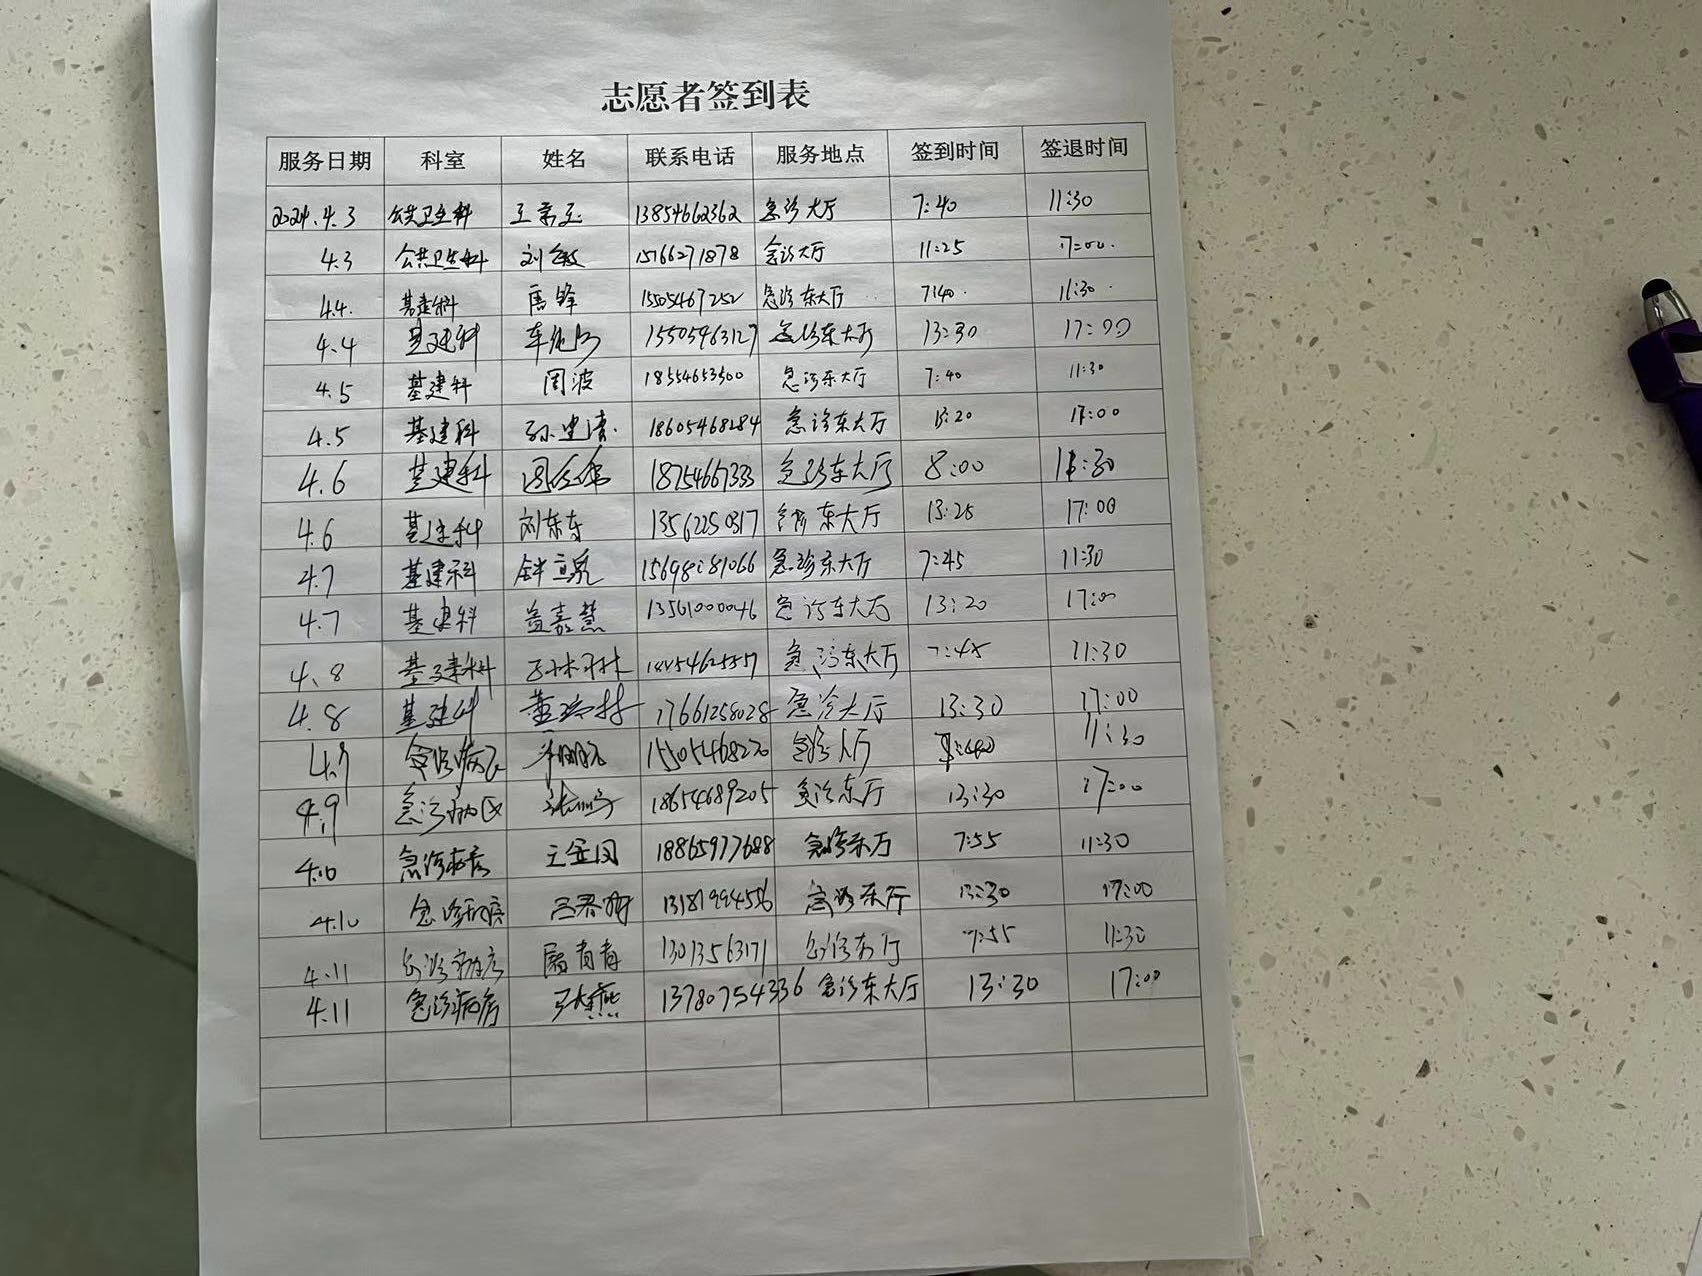 志愿者签到表
服务日期 科室 姓名 联系电话 服务地点 签到时间 签退时间
2024.4.3 公共卫生科 13854662362 急诊大厅 7:40 11:30
4.3 公共卫生科 刘敏 15766271878 急诊大厅 11:25 17:00.
4.4. 基建科 马锋 15505467252 急诊东大厅 7:40. 11:30.
4.4 基建科 15505463127 急诊东大厅 13:30 17:00
4.5 基建科 周波 18554653500 急诊东大厅 7:40 11:30
4.5 基建科 孙建涛 18605468284 急诊东大厅 13:20 17:00
4.6 基建科 18754667333 急诊东大厅 8:00 11:30
4.6 基建科 刘东东 13562250317 急诊东大厅 13:25 17:00
4.7 基建科 急诊东大厅 7:45 11:30
4.7 基建科 盖嘉慧 13561000046 急诊东大厅 13:20 17:00
4.8 基建科 孙林林 急诊东大厅 7:45 11:30
4.8 基建科 17661258028 急诊大厅 13:30 17:00
4.9 15505468220 急诊大厅 11:30
4.9 急诊病区 18654689205 急诊东厅 13:30 17:00
4.10 急诊病房 18865977688 急诊东厅 7:55 11:30
4.10 急诊病房 急诊东厅 13:30 17:00
4.11 急诊病房 扈青青 13013563171 急诊东厅 7:55 11:30
4.11 急诊病房 张燕 13780754336 急诊东大厅 13:30 17:00